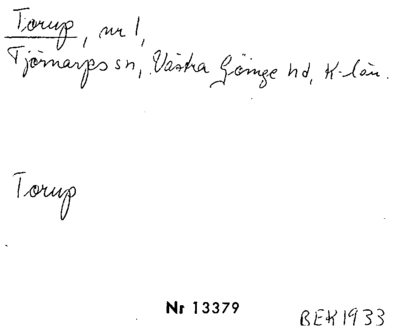 Torup, nr 1,
Tjörnarps sn, Västra Göinge hd, K-län.
Torup
Nr 13379
BEK1933